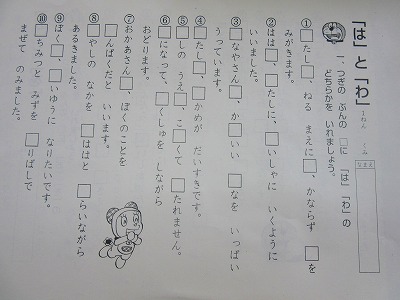 「は」と「わ」
1ねん くみ
なまえ
一、つぎの ぶんの □に 「は」「わ」の
どちらかを いれましょう。
① □たし□、ねる まえに□、かならず □を
みがきます。
② はは□、□たしに、□いしゃに いくように
いいました。
③ □なやさん□、か□いい □なを いっぱい
うっています。
④ □たし□、□かめが だいすきです。
⑤ □しの うえ□、こ□くて □たれません。
⑥ □になって、□くしゅを しながら
おどります。
⑦ おかあさん□、ぼくのことを
□んぱくだと いいます。
⑧ □やしの なかを □ははと □らいながら
あるきました。
⑨ ぼく□、□いゆうに なりたいです。
⑩ □ちみつと みずを □りばしで
まぜて のみました。